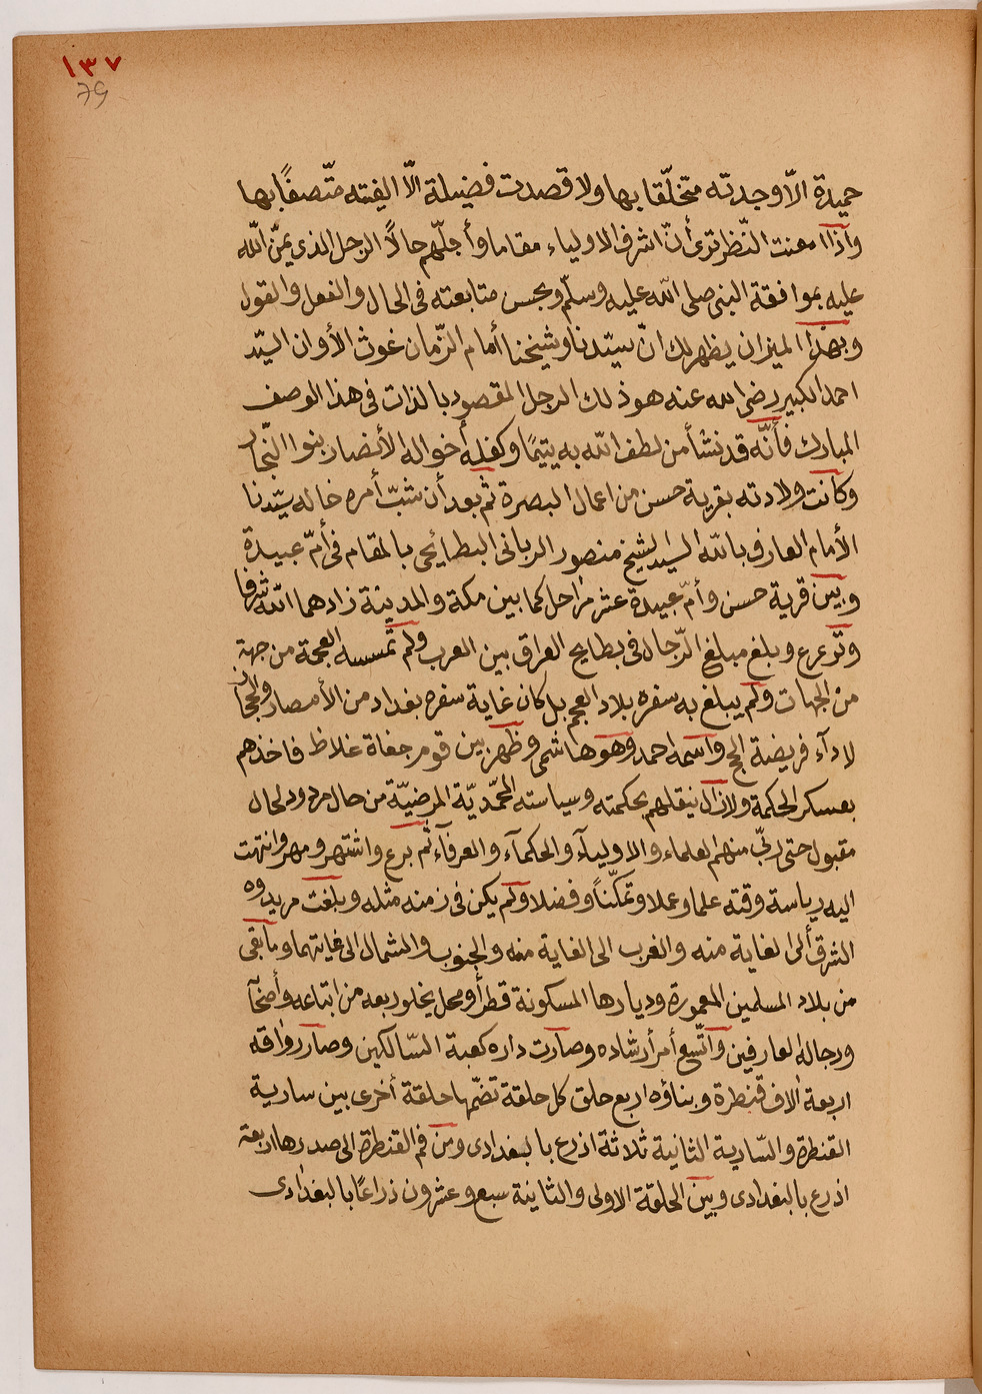 ١٣٧
79
حميدة الّا وجدته متخلّقا بها ولا قصدت فضيلة الّا الفيته متّصفًا بها
وأذا امعنت النّظر ترى أنّ اشرف الاولياء مقاما وأجلّهم حالًا الرجل الذى يمنّ اللّه
عليه بموافقة النبى صلى اللّه عليه وسلّم وبحسن متابعته فى الحال والفعل والقول
وبهذا الميزان يظهر لك انّ سيّدنا وشيخنا أمام الزّمان غوث الأوان السيّد
احمد الكبير رضى الله عنه هو ذلك الرجل المقصود بالذات فى هذا الوصف
المبارك فأنّه قد نشأ من لطف اللّه به يتيمًا وكفله أخواله الأنصار بنوا النّجار
وكانت ولادته بقرية حسن من اعمال البصرة ثم بعد أن شبّ أمره خاله سيّدنا
الأمام العارف باللّه السيد الشيخ منصور الربانى البطائحى بالمقام فى أمّ عبيدة
وبين قرية حسن وأمّ عبيدة عشر مراحل كما بين مكة والمدينة زادهما اللّه شرفا
وترعرع وبلغ مبلغ الرّجال فى بطايح العراق بين العرب ولم تمسسه العجمة من جهة
من الجهات ولم يبلغ به سفره بلاد العجم بل كان غاية سفره بغداد من الأمصار والحجاز
لادآء فريضة الحج واسمه احمد وهو هاشمى وظهر بين قوم جفاة غلاظ فاخذهم
بعسكر الحكمة ولازال ينقلهم بحكمته وسياسته المحمّديّة المرضيّة من حال مردود لحال
مقبول حتى ربّى منهم العلماء والاوليآء والحكمآء والعرفآء ثم برع واشتهر ومهر وانتهت
اليه رياسة وقته علما وعملا وتمكّنًا وفضلا ولم يكن فى زمنه مثله وبلغت مريدوه
الشرق ألى الغاية منه والغرب الى الغاية منه والجنوب والشمال الى غايتهما وما بقى
من بلاد المسلمين المعمورة وديارها المسكونة قطر أو محل يخلو ربعه من اتباعه وأضحآ
ورجاله العارفين وأتّسع أمر أرشاده وصارت داره كعبة السّالكين وصار رواقه
اربعة الاف قنطرة وبناؤه اربع حلق كل حلقة تضمّها حلقة أخرى بين سارية
القنطرة والسّارية الثانية ثلاثة اذرع بالبغدادى ومن فم القنطرة الى صدرها اربعة
اذرع بالبغدادى وبين الحلقة الاولى والثانية سبع وعشرون ذراعًا بالبغدادى